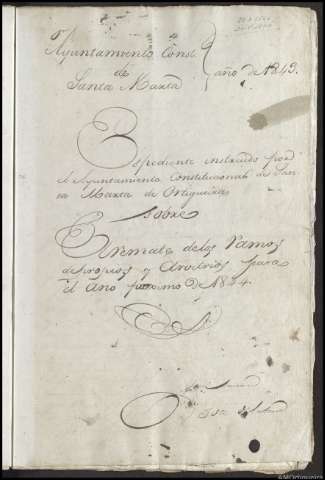 Ayuntamiento Constl
de
Santa Marta
año de 1843.
Espediente instruido por
el Ayuntamiento Constitucional de San-
ta Marta de Ortigueira
sobre
El remate de los Ramos
de propios y Arvitrios para
el Año procsimo de 1844.